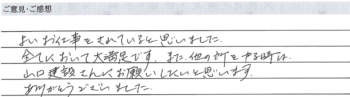 ご意見・ご感想
よいお仕事をされていると思いました。
全てにおいて大満足です。また、他の所をやる時は、
山口建設さんにお願いしたいと思います。
ありがとうございました。